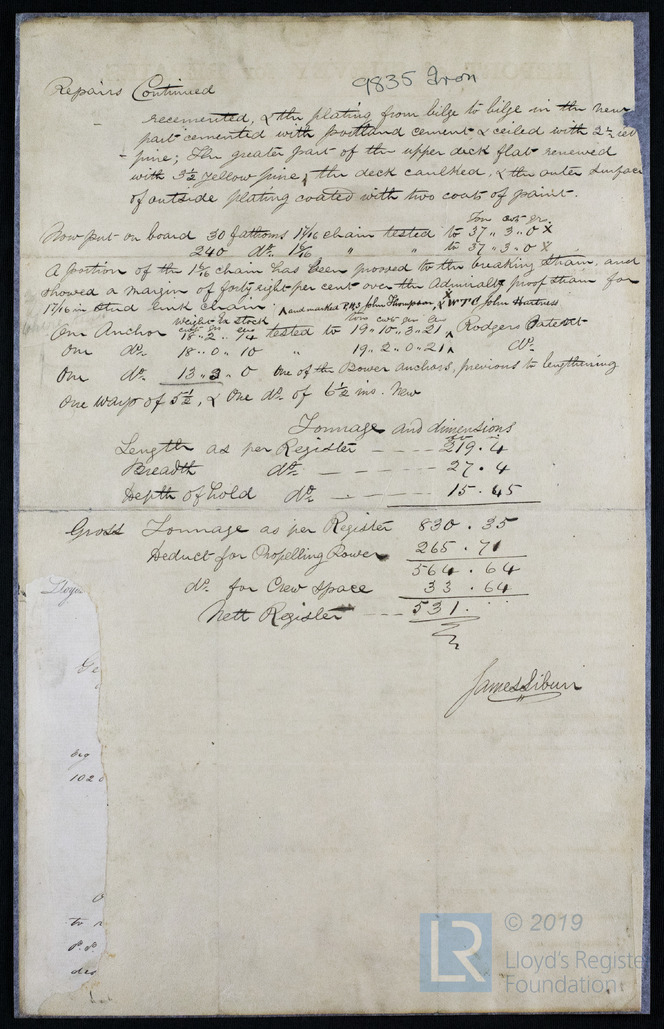 9835 Iron
Repairs Continued
recemented, & the plating from bilge to bilge in the new
part cemented with portland cement & ceiled with 2½ red
pine; The greater part of the upper deck flat renewed
with 3½ yellow pine, the deck caulked, & the outer surface
of outside plating coated with two coats of paint.
Ton cwt qr.
Now put on board 30 fathoms 1 7/16 chain tested to 37 " 3 " 0 X
240 do. 1 6/16 " " to 37 " 3 " 0 X
A portion of the 1 6/16 chain has been proved to the breaking strain, and
showed a margin of forty eight per cent over the Admiralty proof strain for
1 7/16 in stud link chain X and marked John Thompson, & John Hartness
Weight Ex Stock
cwt qr tons cwt qr
One Anchor 18 " 2 " 14 tested to 19 " 10 " 3 " 21 Rodgers Patent
One do. 18 " 0 " 10 " 19 " 2 " 0 " 21 do.
One do. 13 " 3 " 0 one of the Bower anchors, previous to lengthening
One warp of 5½, & One do. of 6½ ins. New
Tonnage and dimensions
Length as per Register 219 . 4
Breadth do. 27 . 4
Depth of hold do. 15 . 45
Gross Tonnage as per Register 830 . 35
Deduct for Propelling Power 265 . 71
564 . 64
do. for Crew space 33 . 64
Nett Register 531 .
Lloyd
James Sibun
Ge
1020
to
des
LR
© 2019
Lloyd's Registe
Foundation